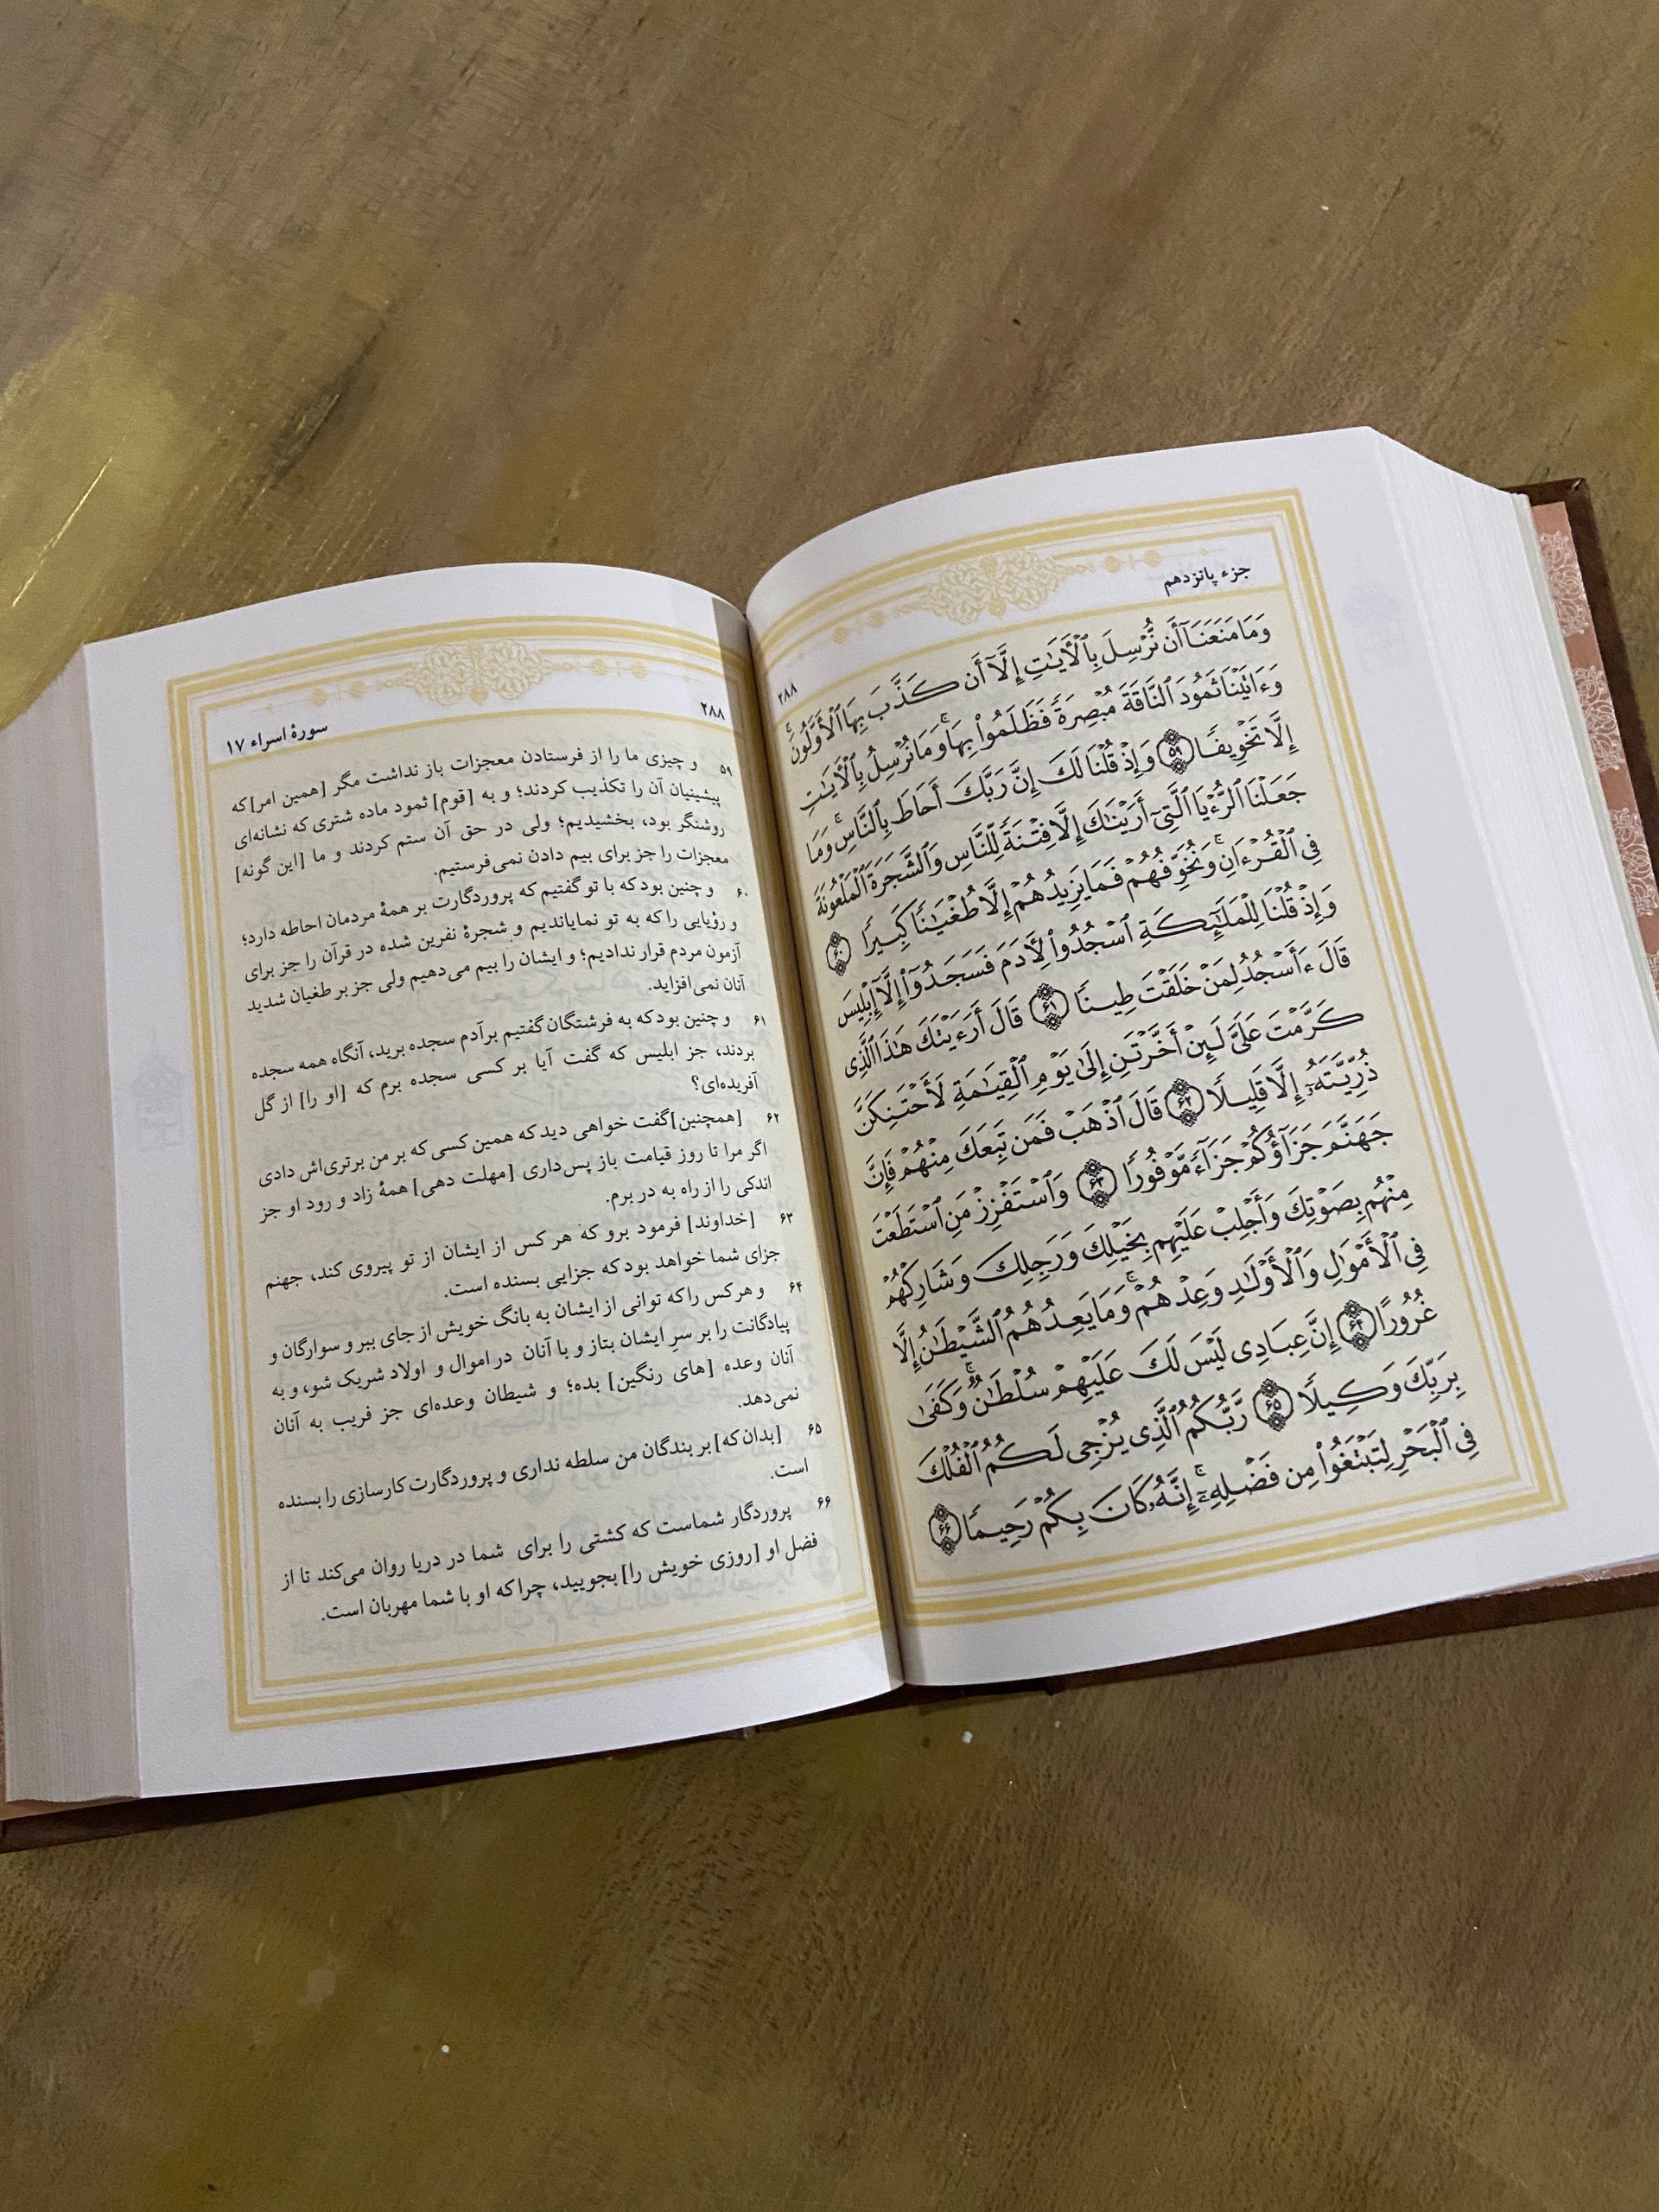 جزء پانزدهم
۲۸۸
وَمَا مَنَعَنَآ أَن نُّرۡسِلَ بِٱلۡأٓيَٰتِ إِلَّآ أَن كَذَّبَ بِهَا ٱلۡأَوَّلُونَۚ
وَءَاتَيۡنَا ثَمُودَ ٱلنَّاقَةَ مُبۡصِرَةٗ فَظَلَمُواْ بِهَاۚ وَمَا نُرۡسِلُ بِٱلۡأٓيَٰتِ
إِلَّا تَخۡوِيفٗا ۵۹ وَإِذۡ قُلۡنَا لَكَ إِنَّ رَبَّكَ أَحَاطَ بِٱلنَّاسِۚ وَمَا
جَعَلۡنَا ٱلرُّءۡيَا ٱلَّتِيٓ أَرَيۡنَٰكَ إِلَّا فِتۡنَةٗ لِّلنَّاسِ وَٱلشَّجَرَةَ ٱلۡمَلۡعُونَةَ
فِي ٱلۡقُرۡءَانِۚ وَنُخَوِّفُهُمۡ فَمَا يَزِيدُهُمۡ إِلَّا طُغۡيَٰنٗا كَبِيرٗا ۶۰
وَإِذۡ قُلۡنَا لِلۡمَلَٰٓئِكَةِ ٱسۡجُدُواْ لِأٓدَمَ فَسَجَدُوٓاْ إِلَّآ إِبۡلِيسَ
قَالَ ءَأَسۡجُدُ لِمَنۡ خَلَقۡتَ طِينٗا ۶۱ قَالَ أَرَءَيۡتَكَ هَٰذَا ٱلَّذِي
كَرَّمۡتَ عَلَيَّ لَئِنۡ أَخَّرۡتَنِ إِلَىٰ يَوۡمِ ٱلۡقِيَٰمَةِ لَأَحۡتَنِكَنَّ
ذُرِّيَّتَهُۥٓ إِلَّا قَلِيلٗا ۶۲ قَالَ ٱذۡهَبۡ فَمَن تَبِعَكَ مِنۡهُمۡ فَإِنَّ
جَهَنَّمَ جَزَآؤُكُمۡ جَزَآءٗ مَّوۡفُورٗا ۶۳ وَٱسۡتَفۡزِزۡ مَنِ ٱسۡتَطَعۡتَ
مِنۡهُم بِصَوۡتِكَ وَأَجۡلِبۡ عَلَيۡهِم بِخَيۡلِكَ وَرَجِلِكَ وَشَارِكۡهُمۡ
فِي ٱلۡأَمۡوَٰلِ وَٱلۡأَوۡلَٰدِ وَعِدۡهُمۡۚ وَمَا يَعِدُهُمُ ٱلشَّيۡطَٰنُ إِلَّا
غُرُورًا ۶۴ إِنَّ عِبَادِي لَيۡسَ لَكَ عَلَيۡهِمۡ سُلۡطَٰنٞۚ وَكَفَىٰ
بِرَبِّكَ وَكِيلٗا ۶۵ رَّبُّكُمُ ٱلَّذِي يُزۡجِي لَكُمُ ٱلۡفُلۡكَ
فِي ٱلۡبَحۡرِ لِتَبۡتَغُواْ مِن فَضۡلِهِۦٓۚ إِنَّهُۥ كَانَ بِكُمۡ رَحِيمٗا ۶۶
۲۸۸
سورهٔ اسراء ۱۷
۵۹ و چیزی ما را از فرستادن معجزات باز نداشت مگر [همین امر] که
پیشینیان آن را تکذیب کردند؛ و به [قوم] ثمود ماده شتری که نشانه‌ای
روشنگر بود، بخشیدیم؛ ولی در حق آن ستم کردند و ما [این گونه]
معجزات را جز برای بیم دادن نمی‌فرستیم.
۶۰ و چنین بود که با تو گفتیم که پروردگارت بر همهٔ مردمان احاطه دارد؛
و رؤیایی را که به تو نمایاندیم و شجرهٔ نفرین شده در قرآن را جز برای
آزمون مردم قرار ندادیم؛ و ایشان را بیم می‌دهیم ولی جز بر طغیان شدید
آنان نمی‌افزاید.
۶۱ و چنین بود که به فرشتگان گفتیم برآدم سجده برید، آنگاه همه سجده
بردند، جز ابلیس که گفت آیا بر کسی سجده برم که [او را] از گل
آفریده‌ای؟
۶۲ [همچنین] گفت خواهی دید که همین کسی که بر من برتری‌اش دادی
اگر مرا تا روز قیامت باز پس‌داری [مهلت دهی] همهٔ زاد و رود او جز
اندکی را از راه به در برم.
۶۳ [خداوند] فرمود برو که هر کس از ایشان از تو پیروی کند، جهنم
جزای شما خواهد بود که جزایی بسنده است.
۶۴ و هرکس را که توانی از ایشان به بانگ خویش از جای ببر و سوارگان و
پیادگانت را بر سرِ ایشان بتاز و با آنان در اموال و اولاد شریک شو، و به
آنان وعده [های رنگین] بده؛ و شیطان وعده‌ای جز فریب به آنان
نمی‌دهد.
۶۵ [بدان که] بر بندگان من سلطه نداری و پروردگارت کارسازی را بسنده
است.
۶۶ پروردگار شماست که کشتی را برای شما در دریا روان می‌کند تا از
فضل او [روزی خویش را] بجویید، چرا که او با شما مهربان است.